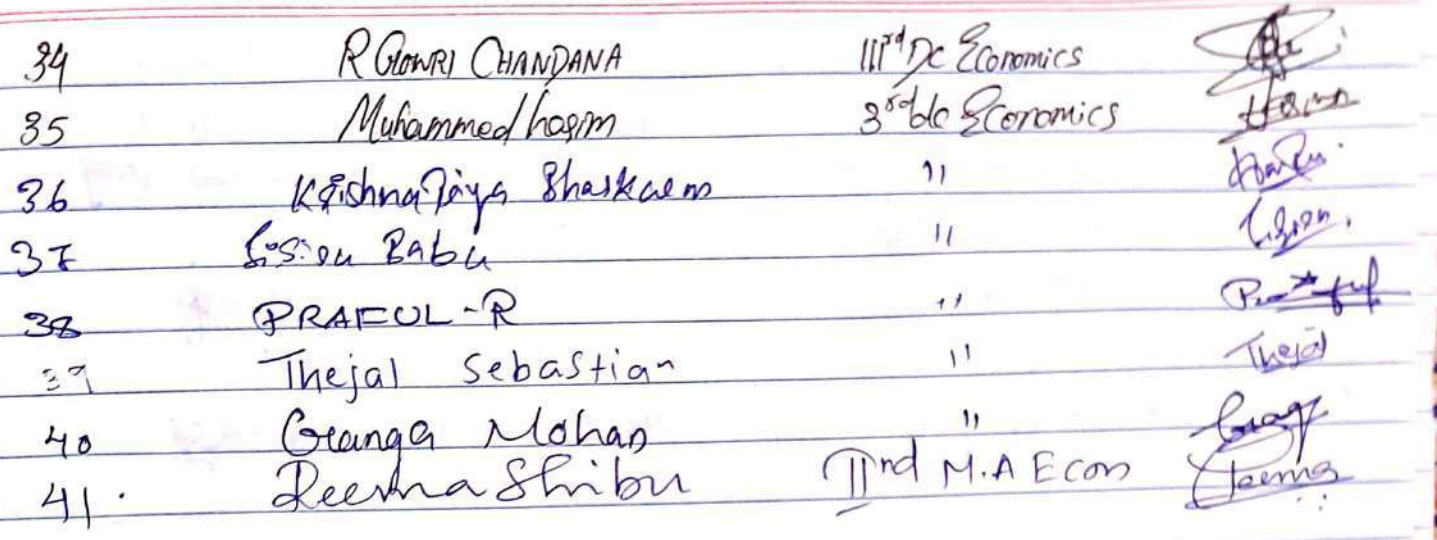 34 R GOWRI CHANDANA IIIrd Dc Economics
35 Muhammed hasim 3rd dc Economics Hasim
36 Krishna Priya Bhaskaran "
37 Babu "
38 PRAFUL-R " Praful
39 Thejal Sebastian " Thejal
40 Ganga Mohan "
41. Reema Shibu IInd M.A Econ Reema